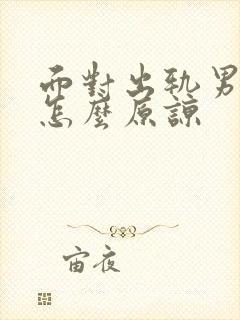 面對出軌男
怎麼原諒
宙夜